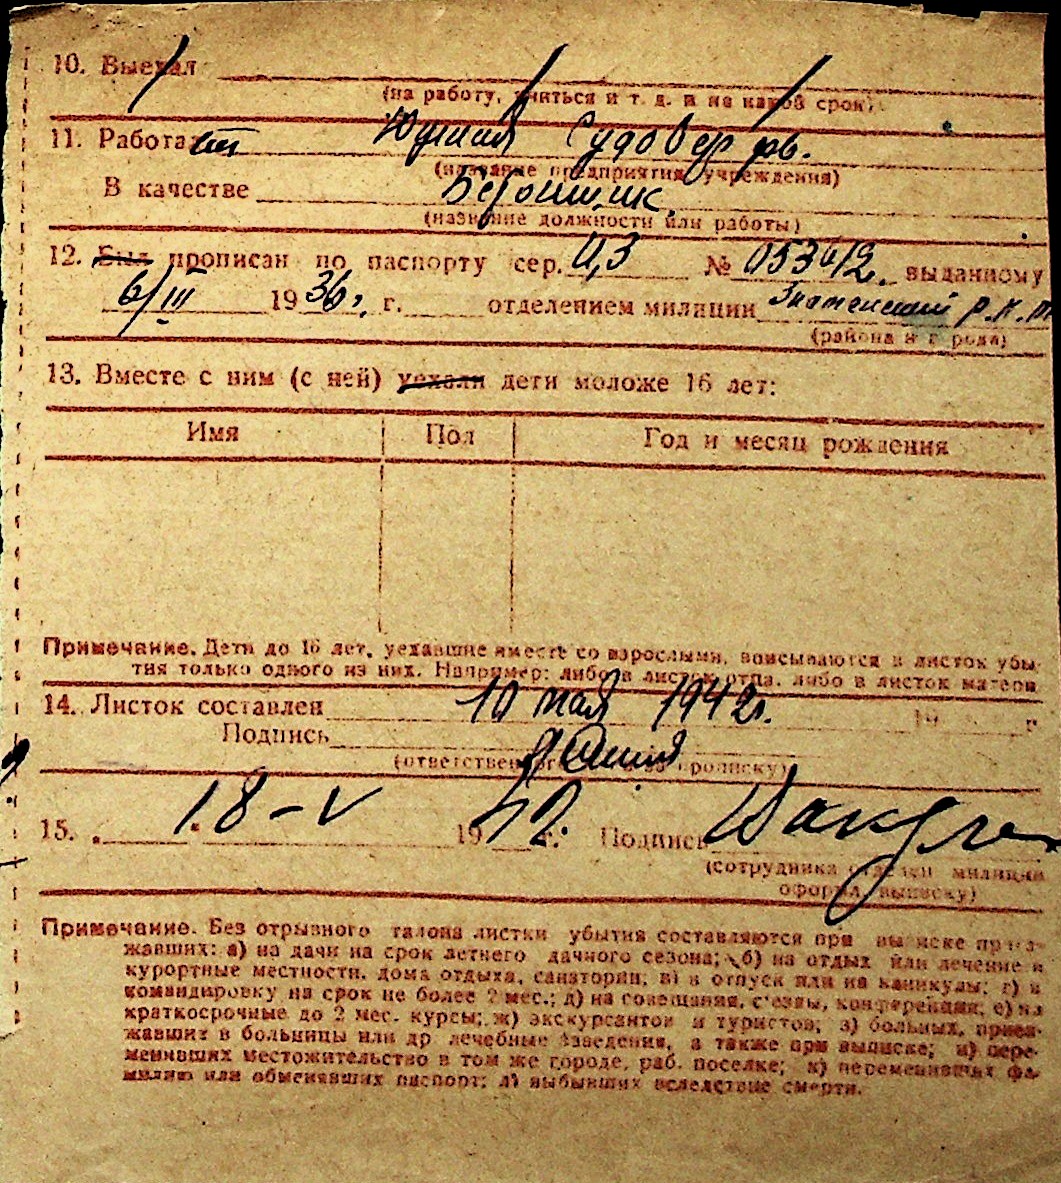 10. Выехал
(на работу, учиться и т. д. и на какой срок)
11. Работает Южная Судоверфь.
(название предприятия, учреждения)
В качестве Бетонщик.
(название должности или работы)
12. Был прописан по паспорту сер. № выданному
6/III 1936 г. отделением милиции Знаменский р.к.м
(района и города)
13. Вместе с ним (с ней) уехали дети моложе 16 лет:
Имя Пол Год и месяц рождения
Примечание. Дети до 16 лет, уехавшие вместе со взрослыми, вписываются в листок убы-
тия только одного из них. Например: либо в листок отца, либо в листок матери
14. Листок составлен 10 мая 1942г. 19 г
Подпись
(ответственного за прописку)
15. „ 18-V 1942 г. Подпись
(сотрудника отделен милиции
оформ. выписку)
Примечание. Без отрывного талона листки убытия составляются при выписке приез-
жавших: а) на дачи на срок летнего дачного сезона; б) на отдых или лечение в
курортные местности, дома отдыха, санатории; в) в отпуск или на каникулы; г) в
командировку на срок не более 2 мес.; д) на совещания, съезды, конференции; е) на
краткосрочные до 2 мес. курсы; ж) экскурсантов и туристов; з) больных, приез-
жавших в больницы или др лечебные заведения, а также при выписке; и) пере-
менивших местожительство в том же городе, раб. поселке; к) переменивших фа-
милию или обменявших паспорт; л) выбывших вследствие смерти.